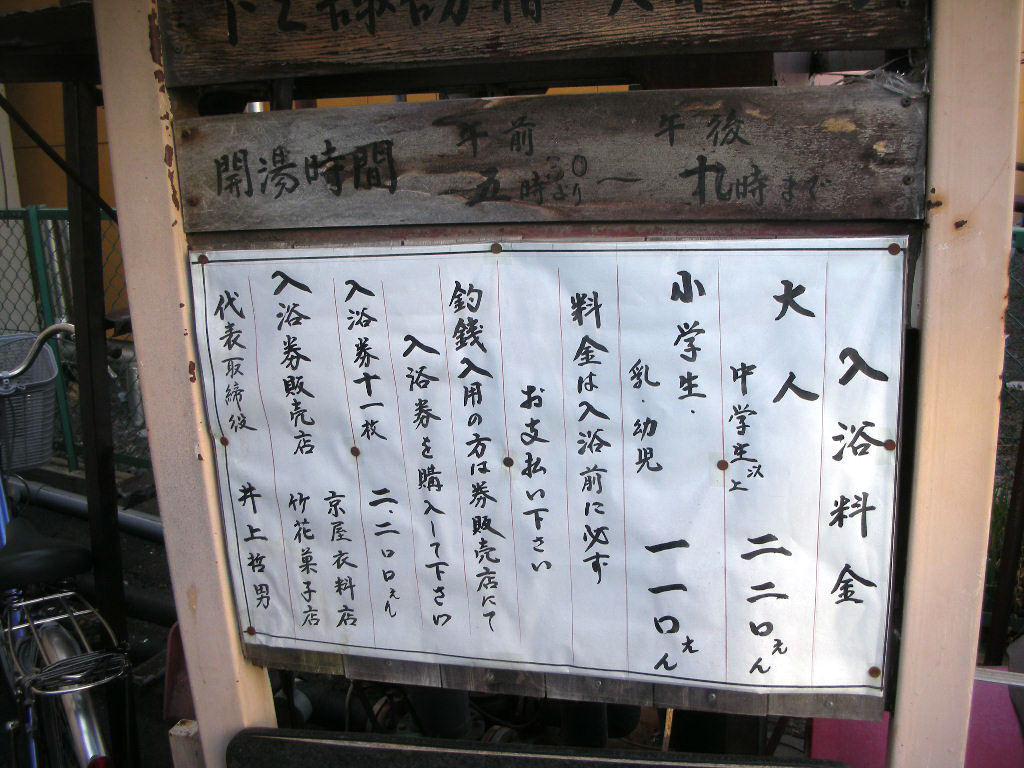 下諏訪
開湯時間 午前五時30より〜午後九時まで
入浴料金
大人 中学生以上 二二〇えん
小学生・乳・幼児 一一〇えん
料金は入浴前に必ず
お支払い下さい
釣銭入用の方は券販売店にて
入浴券を購入して下さい
入浴券十一枚 二、二〇〇えん
入浴券販売店 京屋衣料店
竹花菓子店
代表取締役 井上哲男